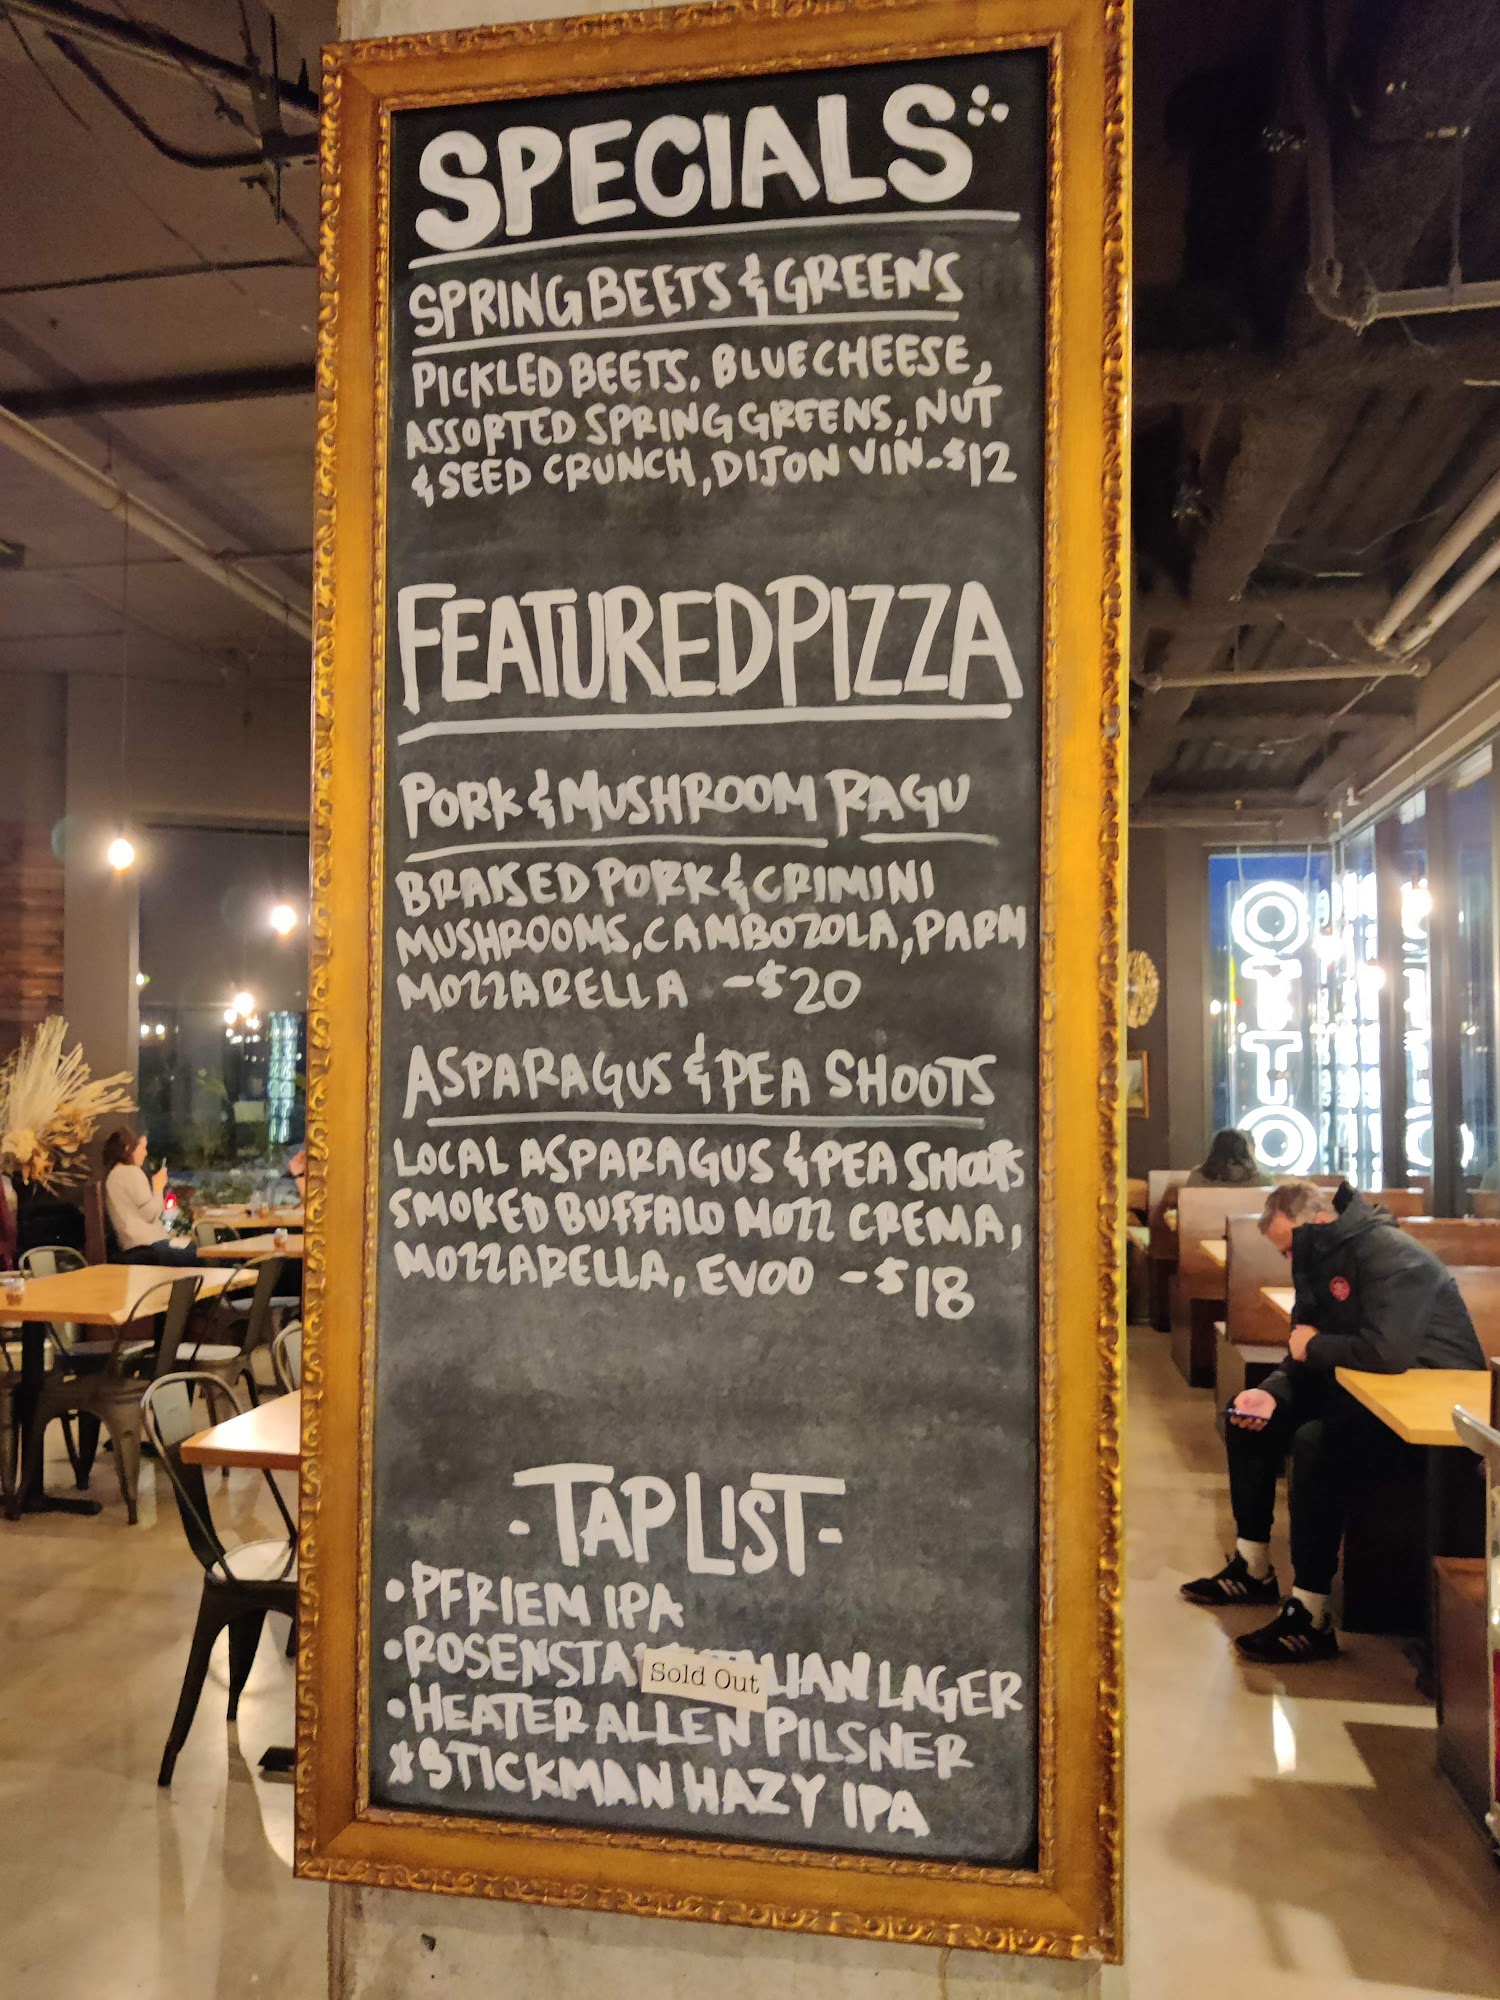 SPECIALS
SPRING BEETS & GREENS
PICKLED BEETS, BLUE CHEESE,
ASSORTED SPRING GREENS, NUT
& SEED CRUNCH, DIJON VIN - $12
FEATURED PIZZA
PORK & MUSHROOM RAGU
BRAISED PORK & CRIMINI
MUSHROOMS, CAMBOZOLA, PARM
MOZZARELLA - $20
ASPARAGUS & PEA SHOOTS
LOCAL ASPARAGUS & PEA SHOOTS
SMOKED BUFFALO MOZZ CREMA,
MOZZARELLA, EVOO - $18
- TAP LIST -
• PFRIEM IPA
• LAGER
Sold Out
• HEATER ALLEN PILSNER
* STICKMAN HAZY IPA
OTTO